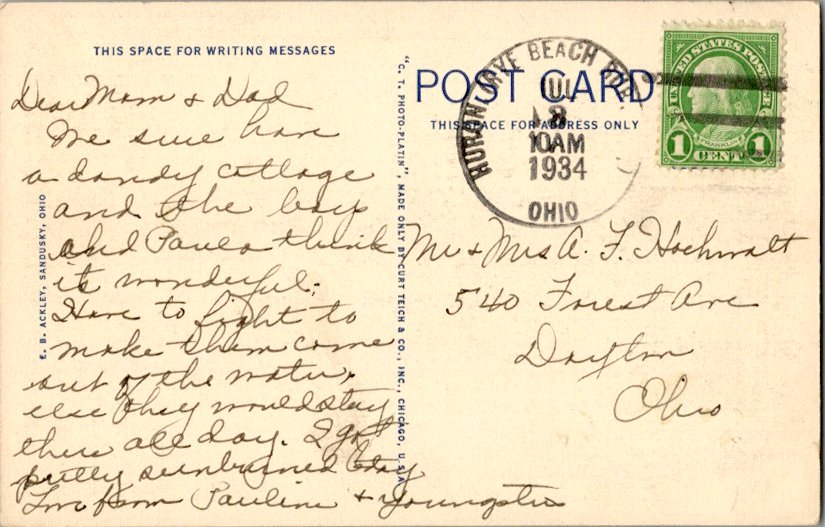 THIS SPACE FOR WRITING MESSAGES
Dear Mom & Dad
We sure have
a dandy cottage
and the boys
and Paula think
it's wonderful.
Have to fight to
make them come
out of the water,
else they would stay
there all day. I got
pretty sunburned today
Love from Pauline & Youngsters
E. B. ACKLEY, SANDUSKY, OHIO
"C. T. PHOTO-PLATIN", MADE ONLY BY CURT TEICH & CO., INC., CHICAGO, U.S.A.
POST CARD
THIS SPACE FOR ADDRESS ONLY
HURON BEACH
JUL
3
10AM
1934
OHIO
UNITED STATES POSTAGE
FRANKLIN
1 CENT 1
Mr & Mrs A. F. Hochwalt
540 Forest Ave
Dayton
Ohio